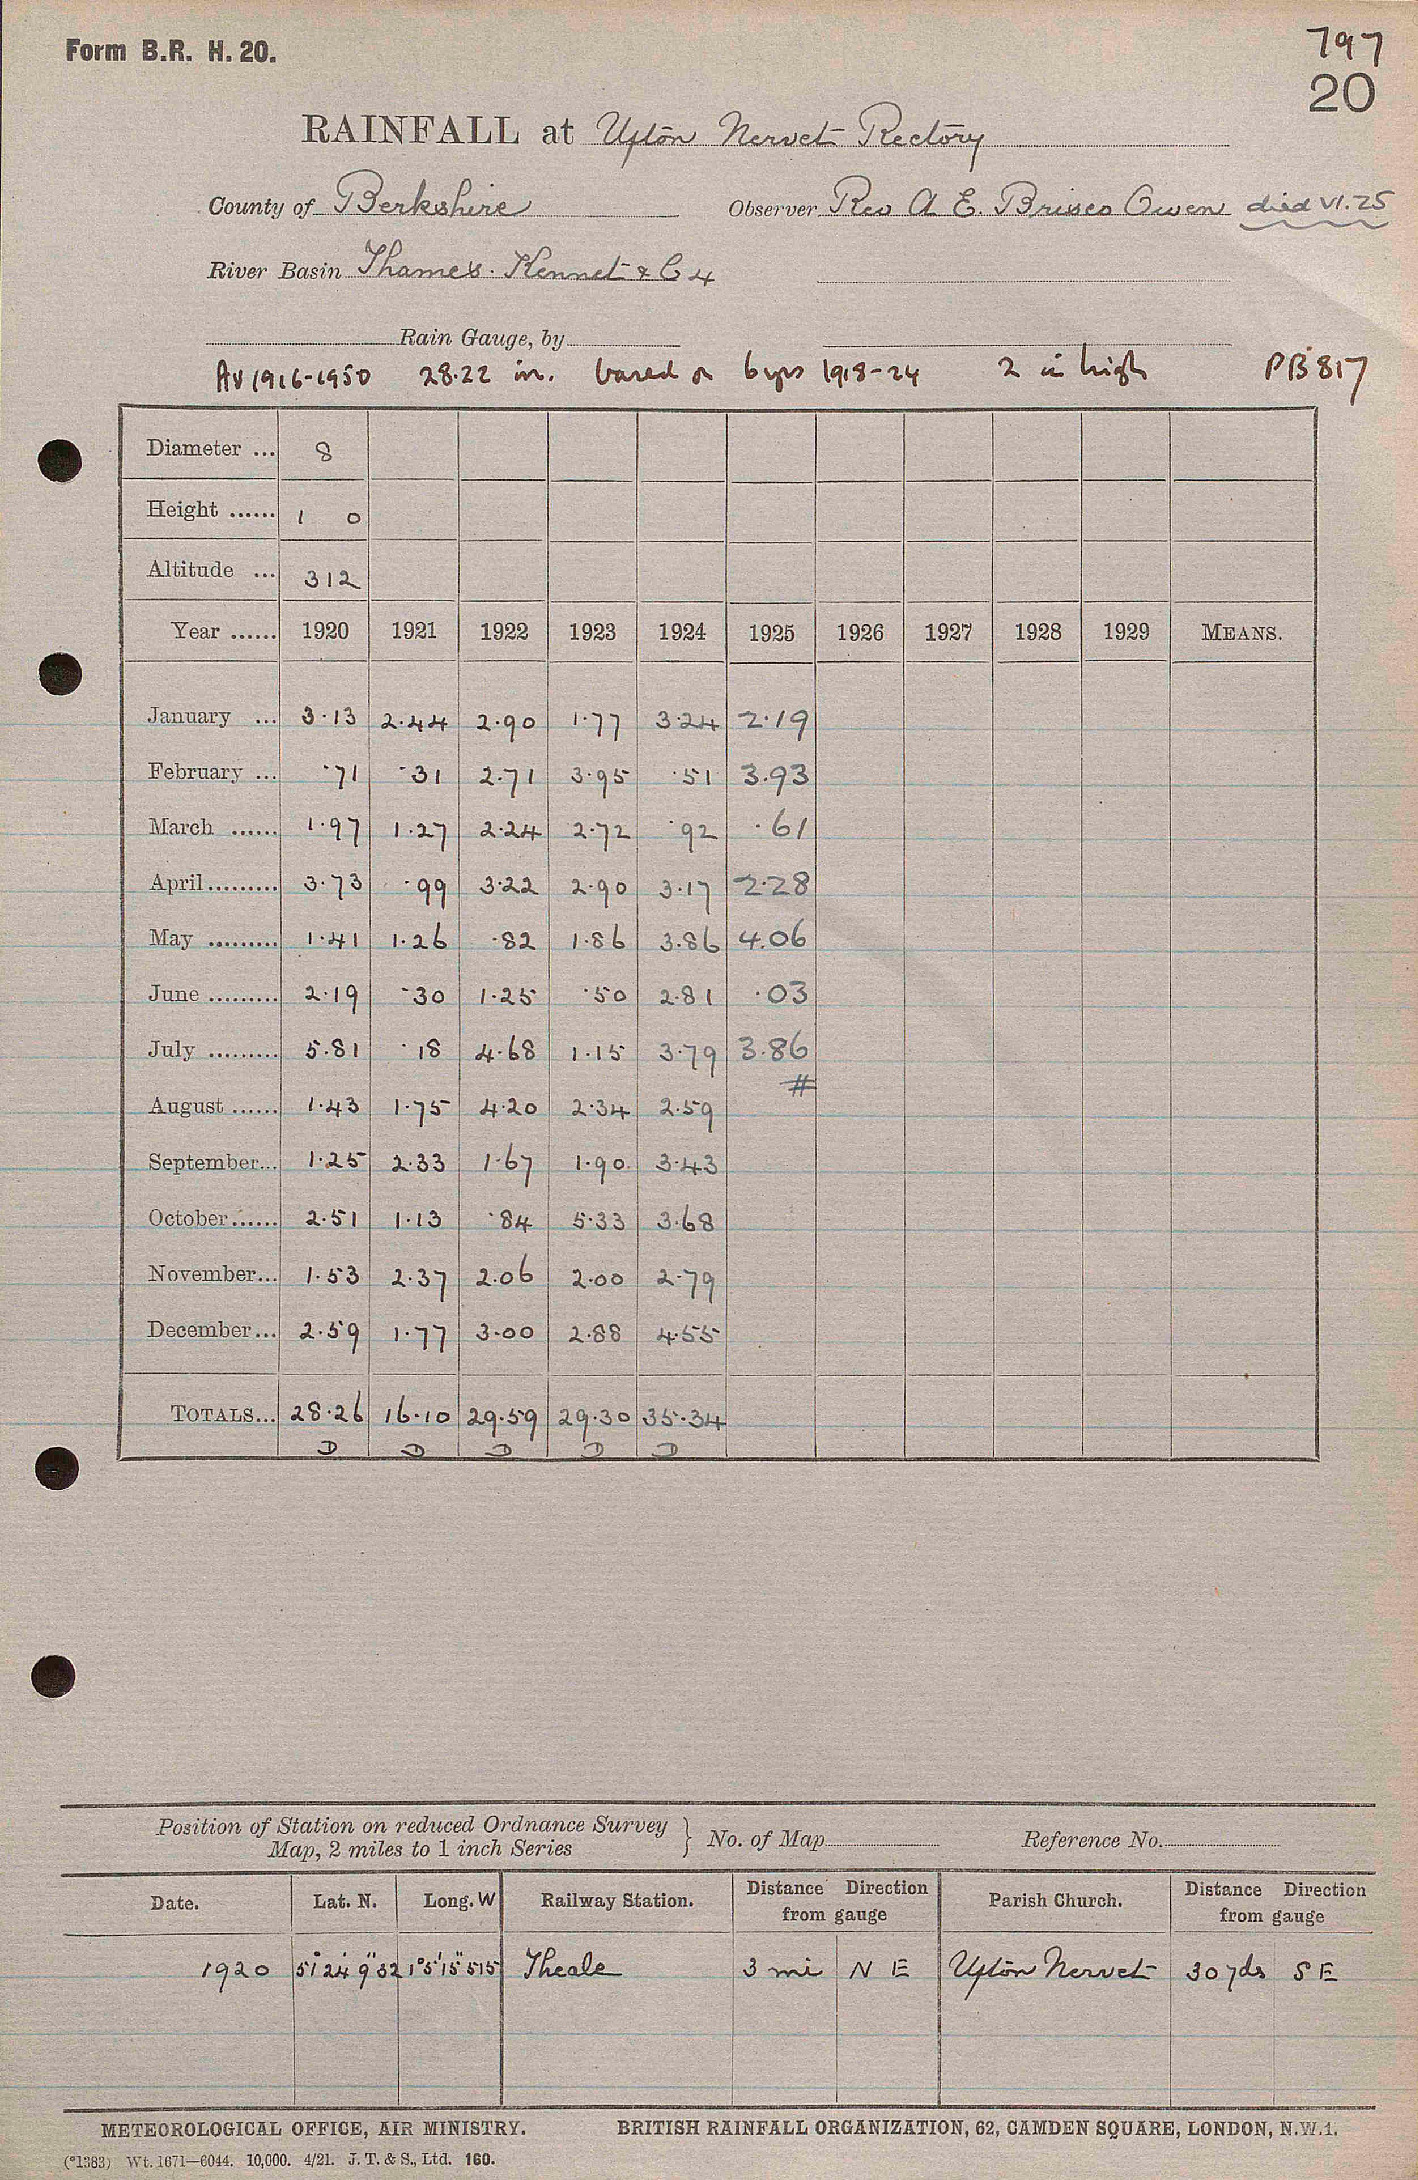 Form B.R. H. 20.
797
20
RAINFALL at Ufton Nervet Rectory
County of Berkshire Observer Rev A E. Brisco Owen died VI.25
River Basin Thames. Kennet & C 4
Rain Gauge, by
Av 1916-1950 28.22 in. based on 6 yrs 1918-24 2 in high PB 817
Diameter ... 8
Height ...... 1 0
Altitude ... 312
Year ...... 1920 1921 1922 1923 1924 1925 1926 1927 1928 1929 MEANS.
January ... 3.13 2.44 2.90 1.77 3.24 2.19
February ... .71 .31 2.71 3.95 .51 3.93
March ...... 1.97 1.27 2.24 2.72 .92 .61
April ......... 3.73 .99 3.22 2.90 3.17 2.28
May ......... 1.41 1.26 .82 1.86 3.86 4.06
June ......... 2.19 .30 1.25 .50 2.81 .03
July ......... 5.81 .18 4.68 1.15 3.79 3.86
#
August ...... 1.43 1.75 4.20 2.34 2.59
September... 1.25 2.33 1.67 1.90 3.43
October...... 2.51 1.13 .84 5.33 3.68
November... 1.53 2.37 2.06 2.00 2.79
December... 2.59 1.77 3.00 2.88 4.55
TOTALS... 28.26 16.10 29.59 29.30 35.34
D D D D D
Position of Station on reduced Ordnance Survey
Map, 2 miles to 1 inch Series } No. of Map Reference No.
Date. Lat. N. Long. W Railway Station. Distance Direction from gauge Parish Church. Distance Direction from gauge
1920 51°24'9"32 1°5'15"515 Theale 3 mi N E Ufton Nervet 30 yds S E
METEOROLOGICAL OFFICE, AIR MINISTRY. BRITISH RAINFALL ORGANIZATION, 62, CAMDEN SQUARE, LONDON, N.W.1.
(*1383) Wt. 1671—6044. 10,000. 4/21. J. T. & S., Ltd. 160.